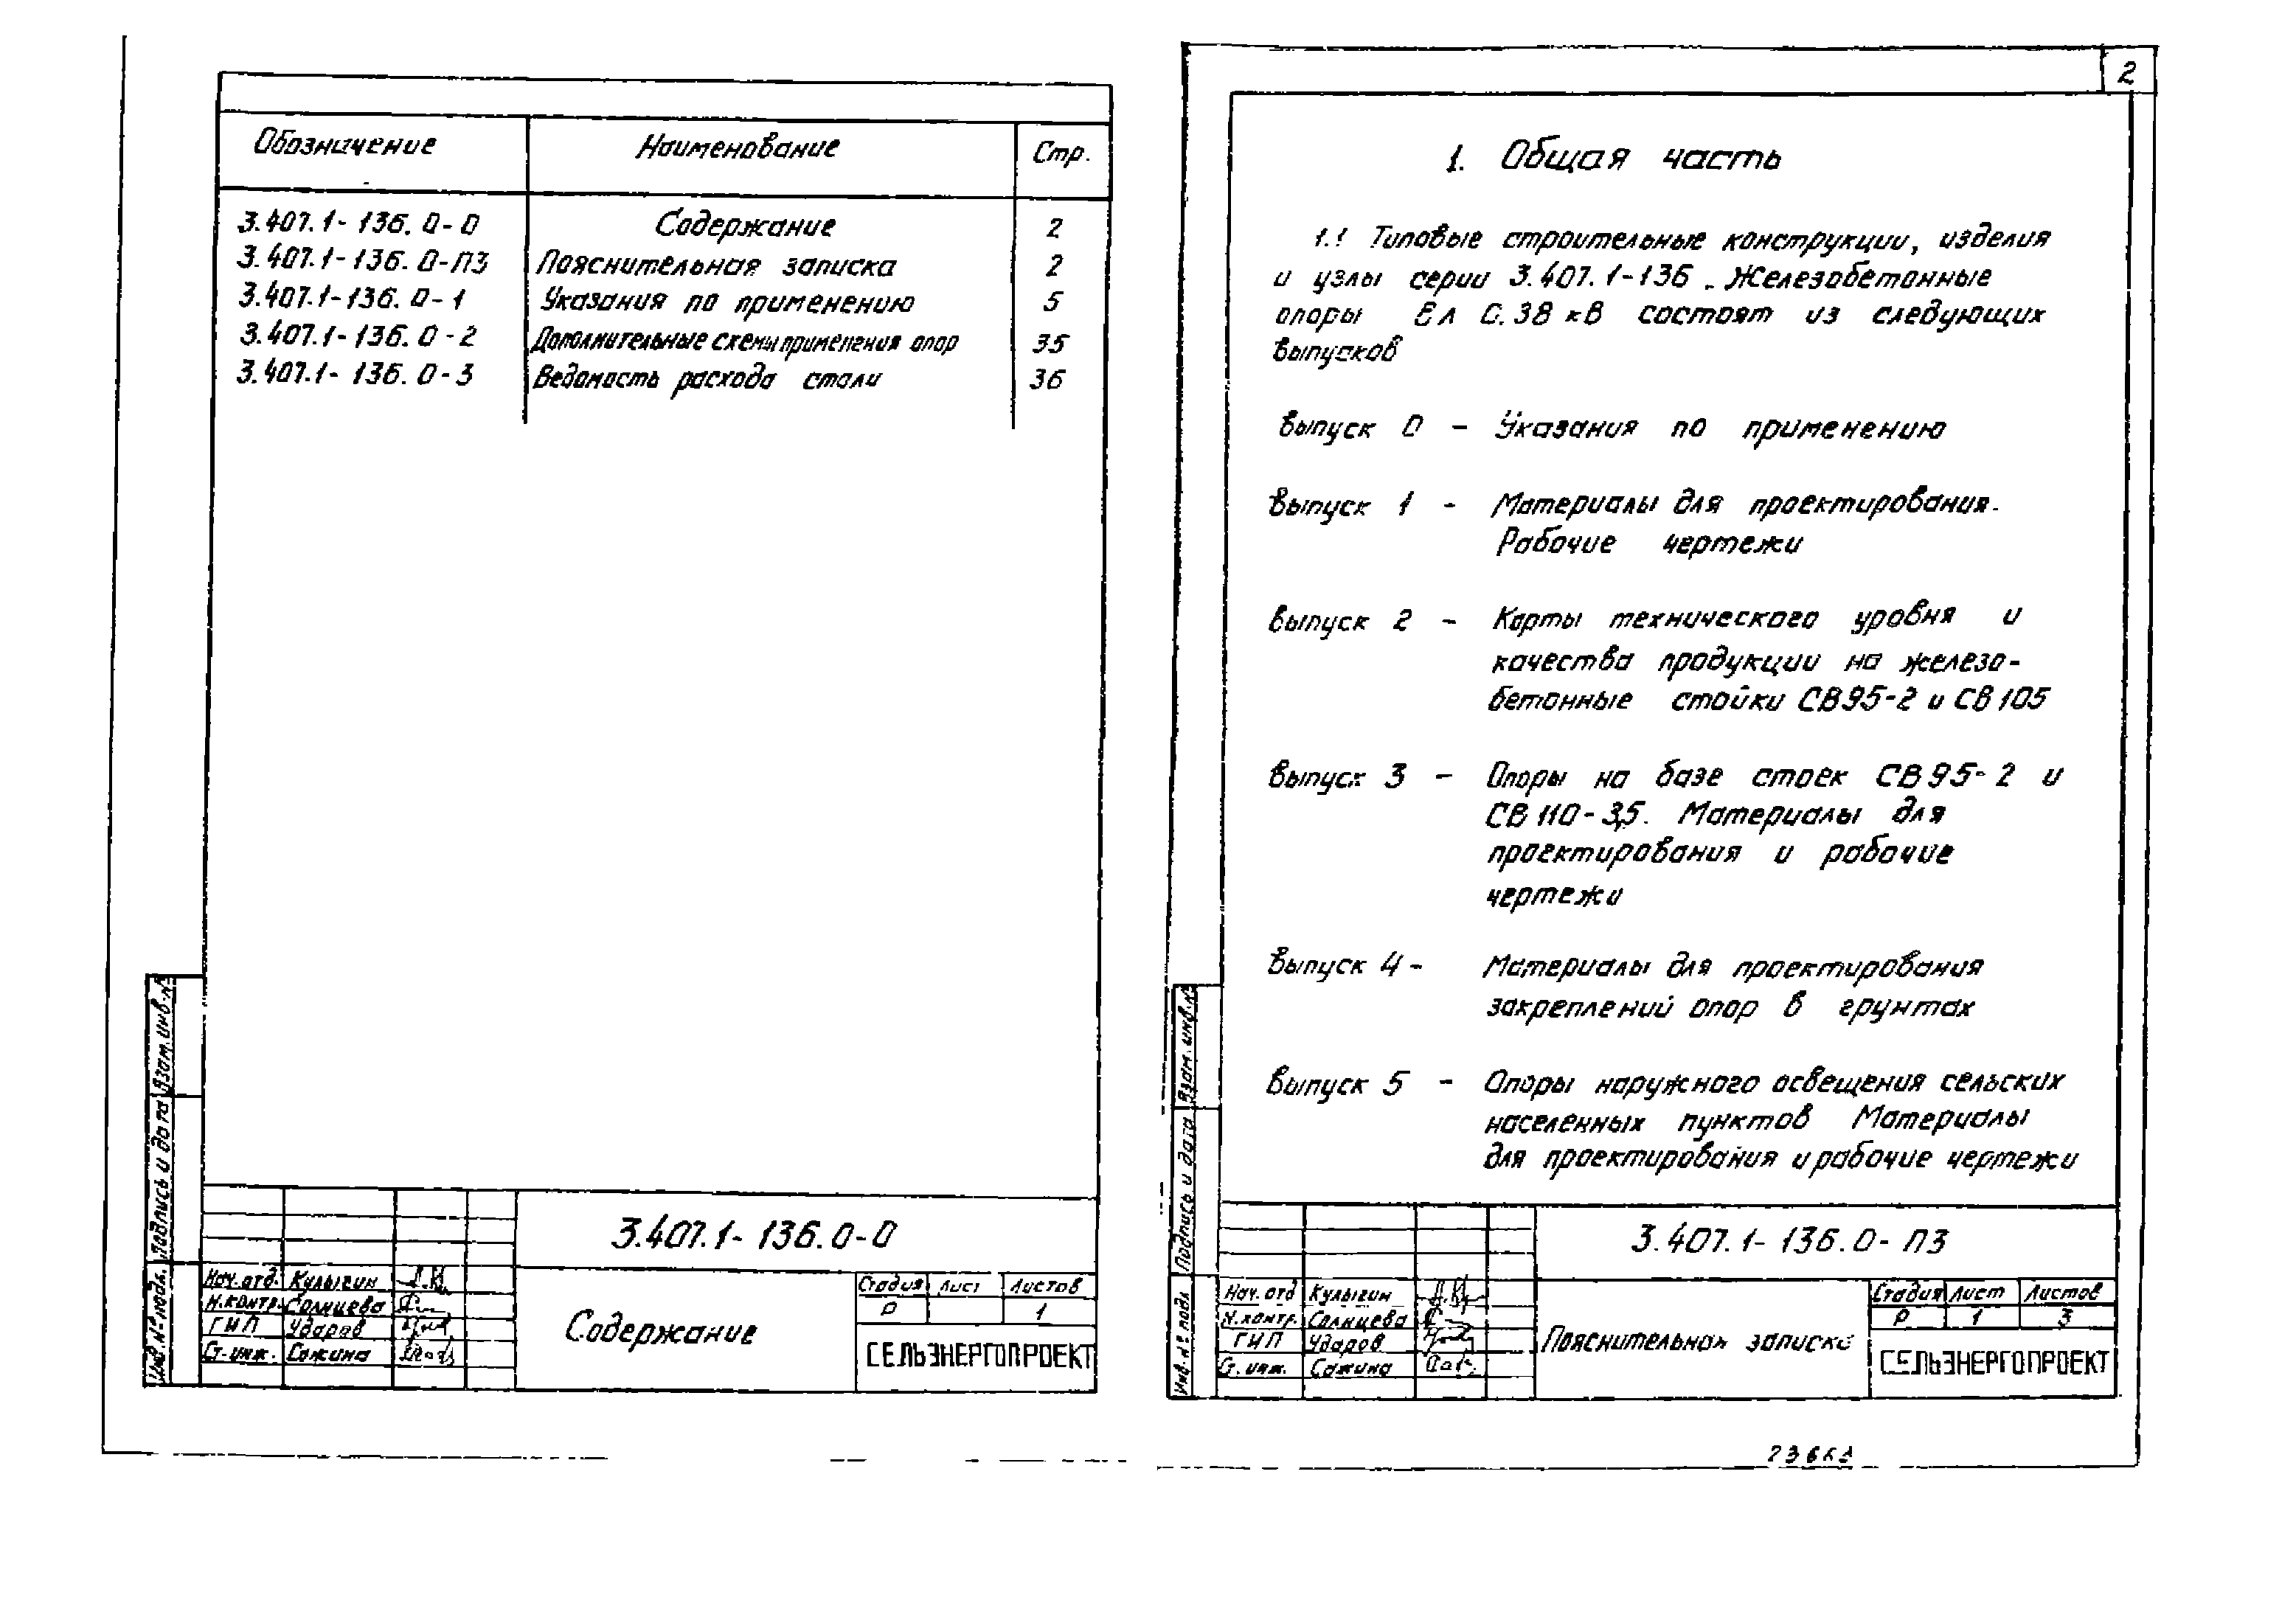 Обозначение Наименование Стр.
3.407.1-136.0-0 Содержание 2
3.407.1-136.0-ПЗ Пояснительная записка 2
3.407.1-136.0-1 Указания по применению 5
3.407.1-136.0-2 Дополнительные схемы применения опор 35
3.407.1-136.0-3 Ведомость расхода стали 36
Взам. инв. №
Подпись и дата
Инв. № подл.
3.407.1-136.0-0
Нач. отд. Кулыгин
Н. контр. Солнцева
ГИП Ударов
Ст. инж. Сажина
Содержание
Стадия Лист Листов
Р 1
СЕЛЬЭНЕРГОПРОЕКТ
2
1. Общая часть
1.1 Типовые строительные конструкции, изделия
и узлы серии 3.407.1-136. Железобетонные
опоры Вл 0.38 кВ состоят из следующих
выпусков
Выпуск 0 - Указания по применению
Выпуск 1 - Материалы для проектирования.
Рабочие чертежи
Выпуск 2 - Карты технического уровня и
качества продукции на железо-
бетонные стойки СВ95-2 и СВ105
Выпуск 3 - Опоры на базе стоек СВ95-2 и
СВ110-3,5. Материалы для
проектирования и рабочие
чертежи
Выпуск 4 - Материалы для проектирования
закреплений опор в грунтах
Выпуск 5 - Опоры наружного освещения сельских
населенных пунктов Материалы
для проектирования и рабочие чертежи
Взам. инв. №
Подпись и дата
Инв. № подл
3.407.1-136.0-ПЗ
Нач. отд Кулыгин
Н. контр. Солнцева
ГИП Ударов
Ст. инж. Сажина
Пояснительная записка
Стадия Лист Листов
Р 1 3
СЕЛЬЭНЕРГОПРОЕКТ